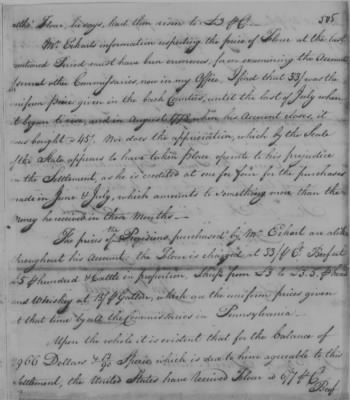 585
altho' Flour, he says, had then risen to £3 ⅌ Ct.
Mr. Eckarts information respecting the price of Flour at the last
mentioned Period must have been erroneous, for on examining the Accounts
several other Commissaries, now in my Office, I find that 33/ was the
uniform Price given in the back Counties, until the last of July when
it began to rise, and in August when his Account closes, it
was bought @ 45/. Nor does the appreciation, which by the Scale
of this State, appears to have taken place operate to his prejudice
in the Settlement, as he is credited at one for four for the purchases
made in June & July, which amounts to something more than the
money he received in those Months.—
The prices of the Provisions purchased by Mr. Eckart are alike
throughout his Account, the Flour is charged at 33/ ⅌ Ct. Beef at
£5 ⅌ hundred & Cattle in proportion, Sheep from £3 to
and Whiskey at ⅌ Gallon, which are the uniform prices given
at that time by all the Commissaries in Pennsylvania.
Upon the whole it is evident that for the Balance of
966 Dollars Specie which is due to him agreeable to this
Settlement, the United States have received Flour @ 6/7 ⅌ Ct.
Beef